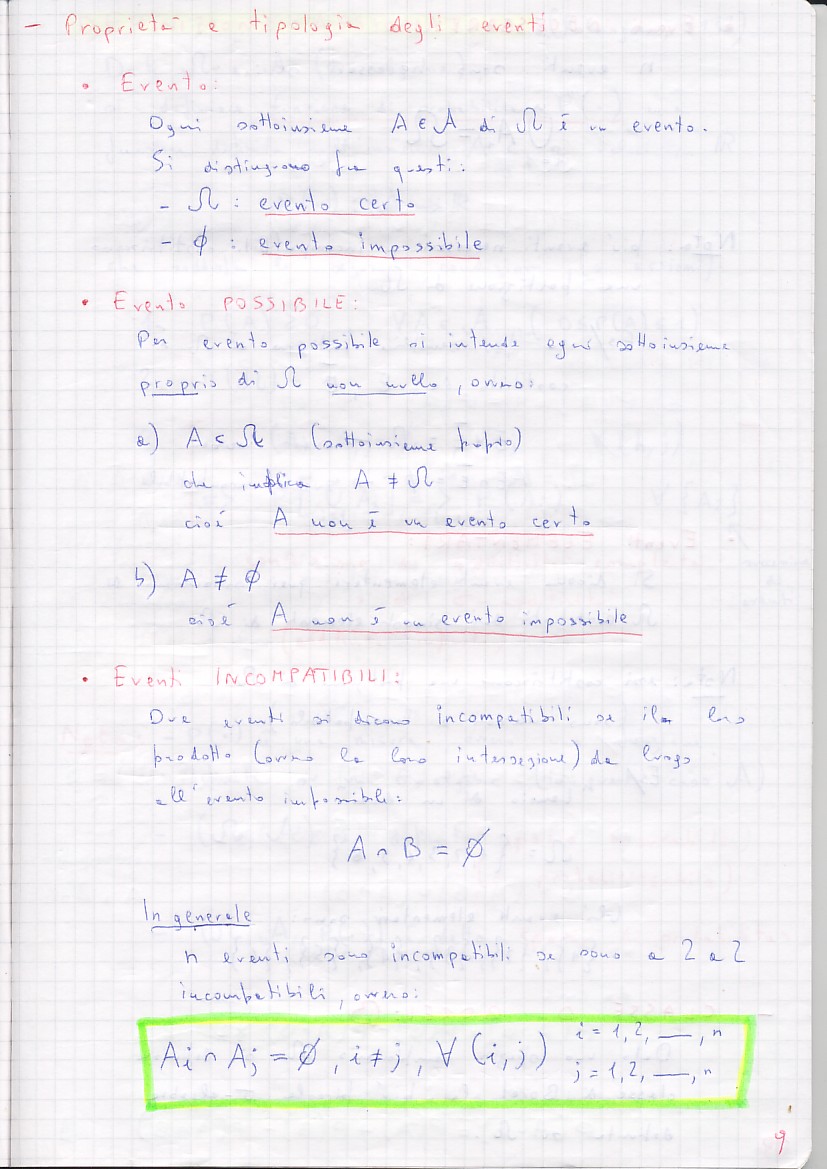 - Proprietà e tipologia degli eventi
• Evento:
Ogni sottoinsieme A ∈ 𝒜 di Ω è un evento.
Si distinguono fra questi:
- Ω : evento certo
- ϕ : evento impossibile
• Evento POSSIBILE:
Per evento possibile si intende ogni sottoinsieme
proprio di Ω non nullo, ovvero:
a) A ⊂ Ω (sottoinsieme proprio)
che implica A ≠ Ω
cioè A non è un evento certo
b) A ≠ ϕ
cioè A non è un evento impossibile
• Eventi INCOMPATIBILI:
Due eventi si dicono incompatibili se il loro
prodotto (ovvero la loro intersezione) da luogo
all'evento impossibile:
A ∩ B = ∅
In generale
n eventi sono incompatibili se sono a 2 a 2
incompatibili, ovvero:
Ai ∩ Aj = ∅, i ≠ j, ∀ (i,j) i = 1, 2, —, n
j = 1, 2, —, n
9